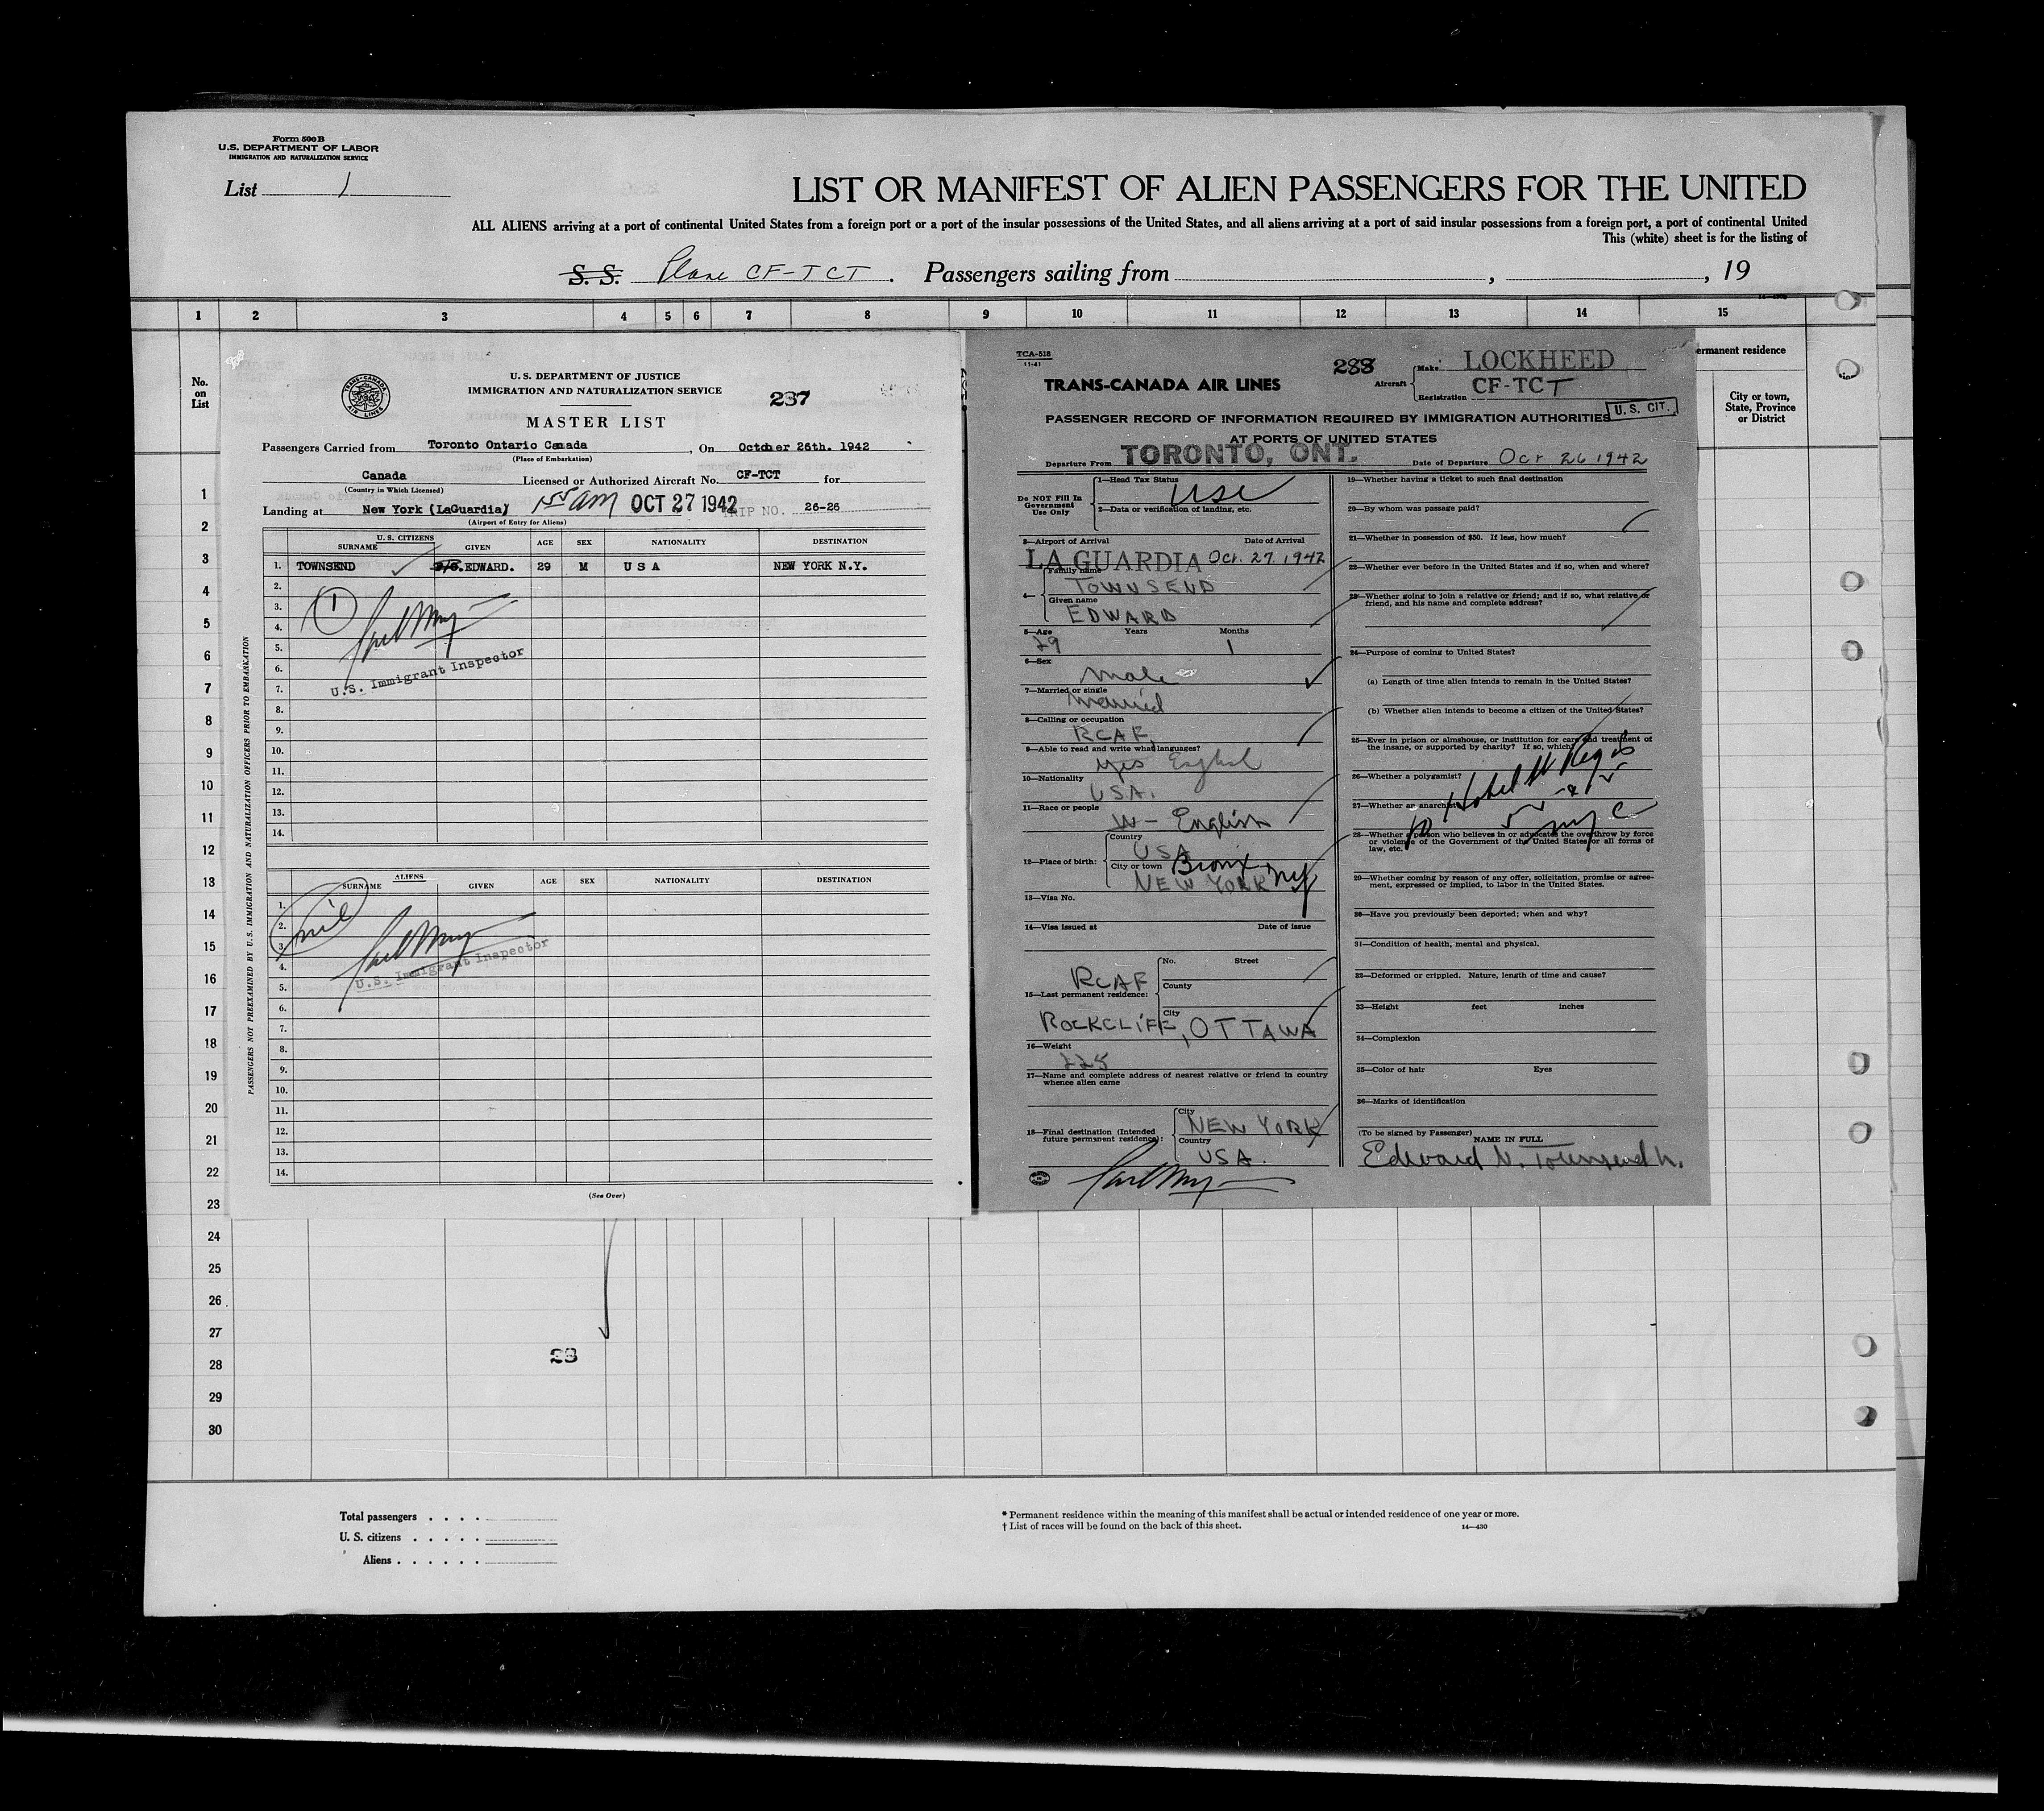 Form 500 B
U.S. DEPARTMENT OF LABOR
IMMIGRATION AND NATURALIZATION SERVICE
List 1
LIST OR MANIFEST OF ALIEN PASSENGERS FOR THE UNITED
ALL ALIENS arriving at a port of continental United States from a foreign port or a port of the insular possessions of the United States, and all aliens arriving at a port of said insular possessions from a foreign port, a port of continental United
This (white) sheet is for the listing of
S. S. Plane CF-TCT . Passengers sailing from , , 19
1 2 3 4 5 6 7 8 9 10 11 12 13 14 15
No. on List
ermanent residence
City or town, State, Province or District
1
2
3
4
5
6
7
8
9
10
11
12
13
14
15
16
17
18
19
20
21
22
23
24
25
26
27
28
29
30
TRANS-CANADA AIR LINES
U. S. DEPARTMENT OF JUSTICE
IMMIGRATION AND NATURALIZATION SERVICE
237
MASTER LIST
Passengers Carried from Toronto Ontario Canada , On October 26th. 1942
(Place of Embarkation)
Canada Licensed or Authorized Aircraft No. CF-TCT for
(Country in Which Licensed)
Landing at New York (LaGuardia) 1 55 AM OCT 27 1942 TRIP NO. 26-26
(Airport of Entry for Aliens)
U. S. CITIZENS
SURNAME GIVEN AGE SEX NATIONALITY DESTINATION
1. TOWNSEND EDWARD. 29 M U S A NEW YORK N.Y.
2.
3. 1
4.
5.
6.
U.S. Immigrant Inspector
7.
8.
9.
10.
11.
12.
13.
14.
ALIENS
SURNAME GIVEN AGE SEX NATIONALITY DESTINATION
1.
2. nil
3.
4.
U.S. Immigrant Inspector
5.
6.
7.
8.
9.
10.
11.
12.
13.
14.
(See Over)
PASSENGERS NOT PREEXAMINED BY U.S. IMMIGRATION AND NATURALIZATION OFFICERS PRIOR TO EMBARKATION
TCA-518
11-41
288
TRANS-CANADA AIR LINES
Aircraft Make LOCKHEED
Registration CF-TCT
PASSENGER RECORD OF INFORMATION REQUIRED BY IMMIGRATION AUTHORITIES
U. S. CIT.
AT PORTS OF UNITED STATES
Departure From TORONTO, ONT. Date of Departure Oct 26 1942
Do NOT Fill In Government Use Only
1—Head Tax Status USC
2—Data or verification of landing, etc.
3—Airport of Arrival Date of Arrival
LA GUARDIA Oct. 27. 1942
4— Family name
TOWNSEND
Given name
EDWARD
5—Age Years Months
29 1
6—Sex
Male
7—Married or single
Married
8—Calling or occupation
RCAF
9—Able to read and write what languages?
yes English
10—Nationality
USA.
11—Race or people
W - English
12—Place of birth: Country
USA
City or town Bronx, NY
NEW YORK
13—Visa No.
14—Visa issued at Date of issue
No. Street
RCAF
County
15—Last permanent residence:
City
ROCKCLIFF, OTTAWA
16—Weight
225
17—Name and complete address of nearest relative or friend in country whence alien came
18—Final destination (Intended future permanent residence):
City
NEW YORK
Country
USA.
19—Whether having a ticket to such final destination
20—By whom was passage paid?
21—Whether in possession of $50. If less, how much?
22—Whether ever before in the United States and if so, when and where?
23—Whether going to join a relative or friend; and if so, what relative or friend, and his name and complete address?
24—Purpose of coming to United States?
(a) Length of time alien intends to remain in the United States?
(b) Whether alien intends to become a citizen of the United States?
25—Ever in prison or almshouse, or institution for care and treatment of the insane, or supported by charity? If so, which?
26—Whether a polygamist?
Hotel St Regis
27—Whether an anarchist
NYC
28—Whether a person who believes in or advocates the overthrow by force or violence of the Government of the United States or all forms of law, etc.
29—Whether coming by reason of any offer, solicitation, promise or agreement, expressed or implied, to labor in the United States.
30—Have you previously been deported; when and why?
31—Condition of health, mental and physical.
32—Deformed or crippled. Nature, length of time and cause?
33—Height feet inches
34—Complexion
35—Color of hair Eyes
36—Marks of identification
(To be signed by Passenger)
NAME IN FULL
Edward N. Townsend Jr.
Total passengers . . . .
U. S. citizens . . . . .
Aliens . . . . . .
* Permanent residence within the meaning of this manifest shall be actual or intended residence of one year or more.
† List of races will be found on the back of this sheet. 14—430